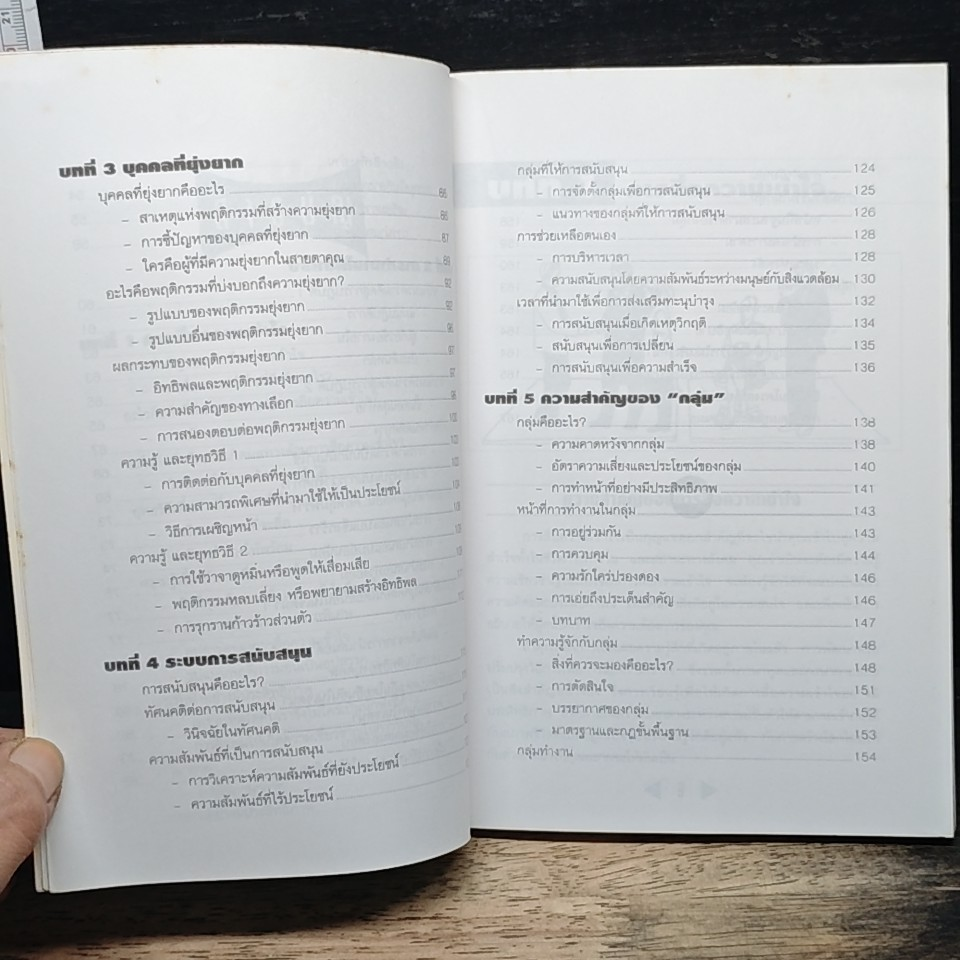 บทที่ 3 บุคคลที่ยุ่งยาก
บุคคลที่ยุ่งยากคืออะไร 86
– สาเหตุแห่งพฤติกรรมที่สร้างความยุ่งยาก 86
– การชี้ปัญหาของบุคคลที่ยุ่งยาก 87
– ใครคือผู้ที่มีความยุ่งยากในสายตาคุณ 89
อะไรคือพฤติกรรมที่บ่งบอกถึงความยุ่งยาก? 92
– รูปแบบของพฤติกรรมยุ่งยาก 92
– รูปแบบอื่นของพฤติกรรมยุ่งยาก 96
ผลกระทบของพฤติกรรมยุ่งยาก 97
– อิทธิพลและพฤติกรรมยุ่งยาก 97
– ความสำคัญของทางเลือก
– การสนองตอบต่อพฤติกรรมยุ่งยาก
ความรู้ และยุทธวิธี 1
– การติดต่อกับบุคคลที่ยุ่งยาก
– ความสามารถพิเศษที่นำมาใช้ให้เป็นประโยชน์
– วิธีการเผชิญหน้า
ความรู้ และยุทธวิธี 2
– การใช้วาจาดูหมิ่นหรือพูดให้เสื่อมเสีย
– พฤติกรรมหลบเลี่ยง หรือพยายามสร้างอิทธิพล
– การรุกรานก้าวร้าวส่วนตัว
บทที่ 4 ระบบการสนับสนุน
การสนับสนุนคืออะไร?
ทัศนคติต่อการสนับสนุน
– วินิจฉัยในทัศนคติ
ความสัมพันธ์ที่เป็นการสนับสนุน
– การวิเคราะห์ความสัมพันธ์ที่ยังประโยชน์
– ความสัมพันธ์ที่ไร้ประโยชน์
กลุ่มที่ให้การสนับสนุน 124
– การจัดตั้งกลุ่มเพื่อการสนับสนุน 125
– แนวทางของกลุ่มที่ให้การสนับสนุน 126
การช่วยเหลือตนเอง 128
– การบริหารเวลา 128
– ความสนับสนุนโดยความสัมพันธ์ระหว่างมนุษย์กับสิ่งแวดล้อม 130
เวลาที่นำมาใช้เพื่อการส่งเสริมทะนุบำรุง 132
– การสนับสนุนเมื่อเกิดเหตุวิกฤติ 134
– สนับสนุนเพื่อการเปลี่ยน 135
– การสนับสนุนเพื่อความสำเร็จ 136
บทที่ 5 ความสำคัญของ “กลุ่ม”
กลุ่มคืออะไร? 138
– ความคาดหวังจากกลุ่ม 138
– อัตราความเสี่ยงและประโยชน์ของกลุ่ม 140
– การทำหน้าที่อย่างมีประสิทธิภาพ 141
หน้าที่การทำงานในกลุ่ม 143
– การอยู่ร่วมกัน 143
– การควบคุม 144
– ความรักใคร่ปรองดอง 146
– การเอ่ยถึงประเด็นสำคัญ 146
– บทบาท 147
ทำความรู้จักกับกลุ่ม 148
– สิ่งที่ควรจะมองคืออะไร? 148
– การตัดสินใจ 151
– บรรยากาศของกลุ่ม 152
– มาตรฐานและกฎขั้นพื้นฐาน 153
กลุ่มทำงาน 154